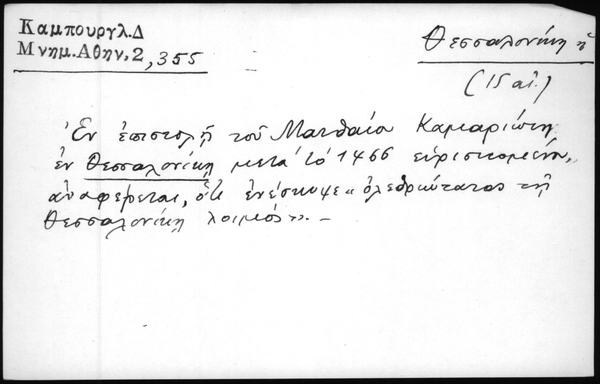 Καμπουργλ.Δ
Μνημ.Αθην.2,355
Θεσσαλονίκη ἡ
(15 αἰ.)
Ἐν ἐπιστολῇ τοῦ Ματθαίου Καμαριώτη
ἐν Θεσσαλονίκῃ μετά τό 1466 εὑρισκομένου,
ἀναφέρεται, ὅτι ἐνέσκηψε «ὀλεθριώτατος τῇ
Θεσσαλονίκῃ λοιμός». –